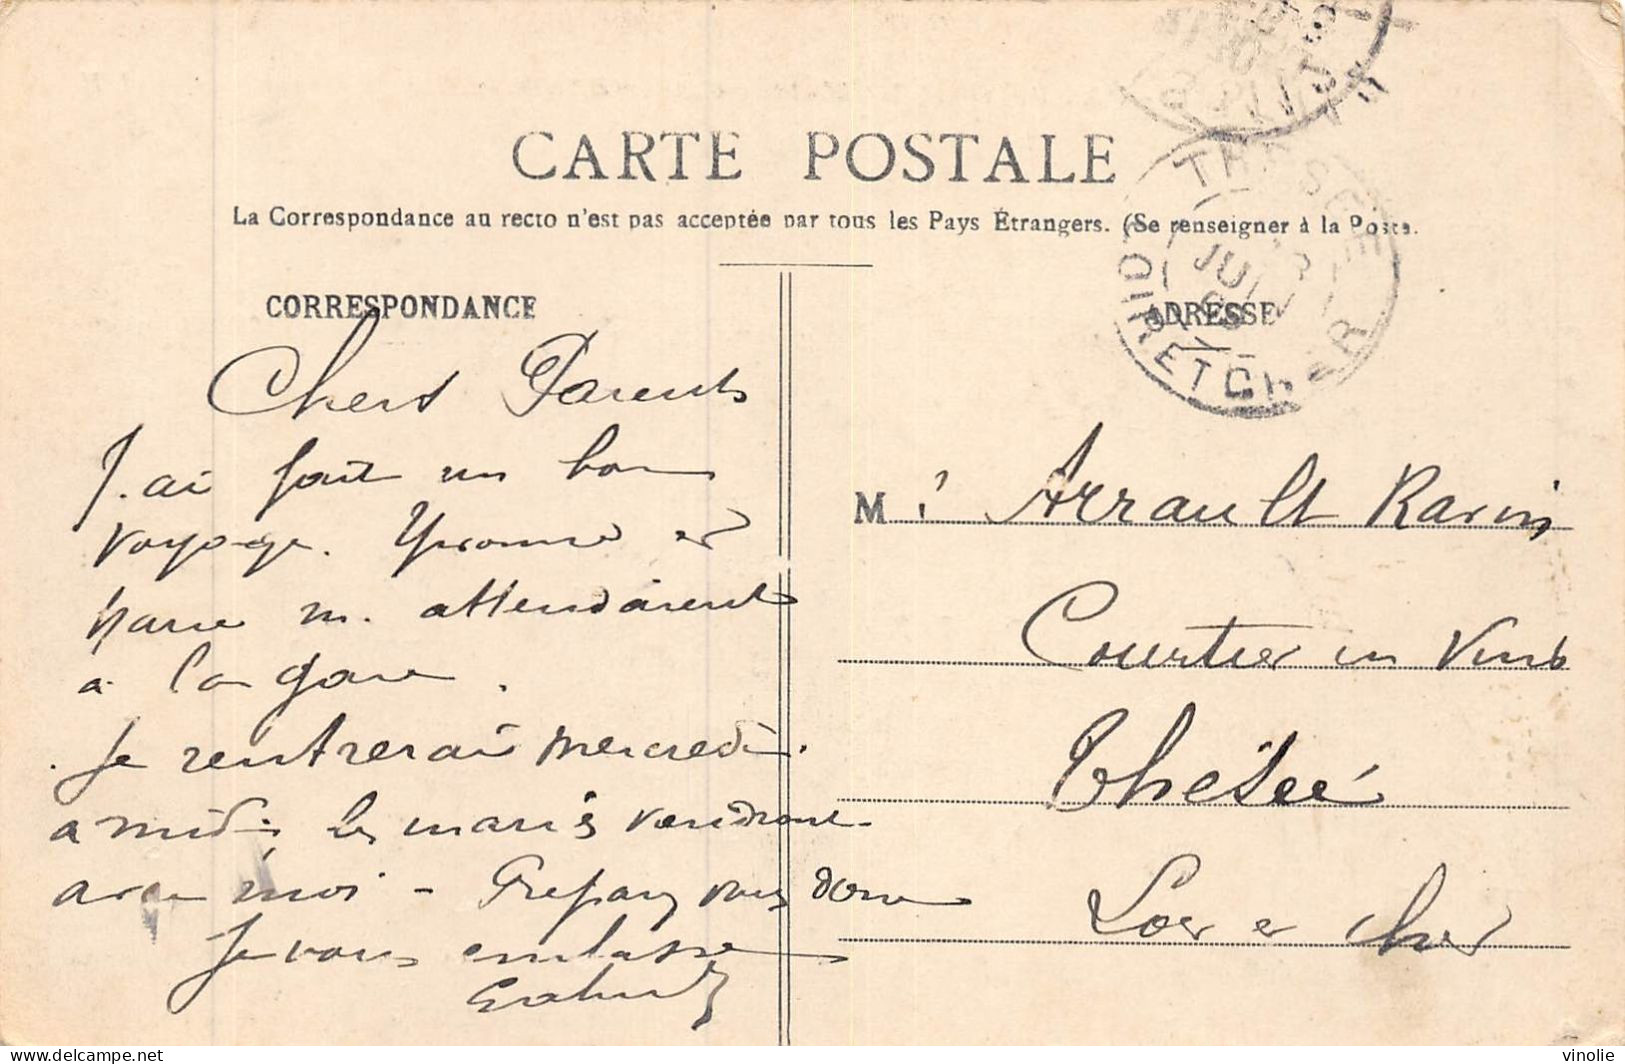 CARTE POSTALE
La Correspondance au recto n'est pas acceptée par tous les Pays Étrangers. (Se renseigner à la Poste.
CORRESPONDANCE
Chers Parents
J'ai fait un bon
voyage. Yvonne et
Marie m. attendaient
à la gare.
Je rentrerai mercredi
a midi. Les mariés viendront
avec moi - Préparez vous donc
Je vous embrasse
ADRESSE
M. Arrault Ravin
Courtier en Vins
Thésée
Loir et Cher
THESEE
JUIL
LOIR ET CHER
delcampe.net
vinolie